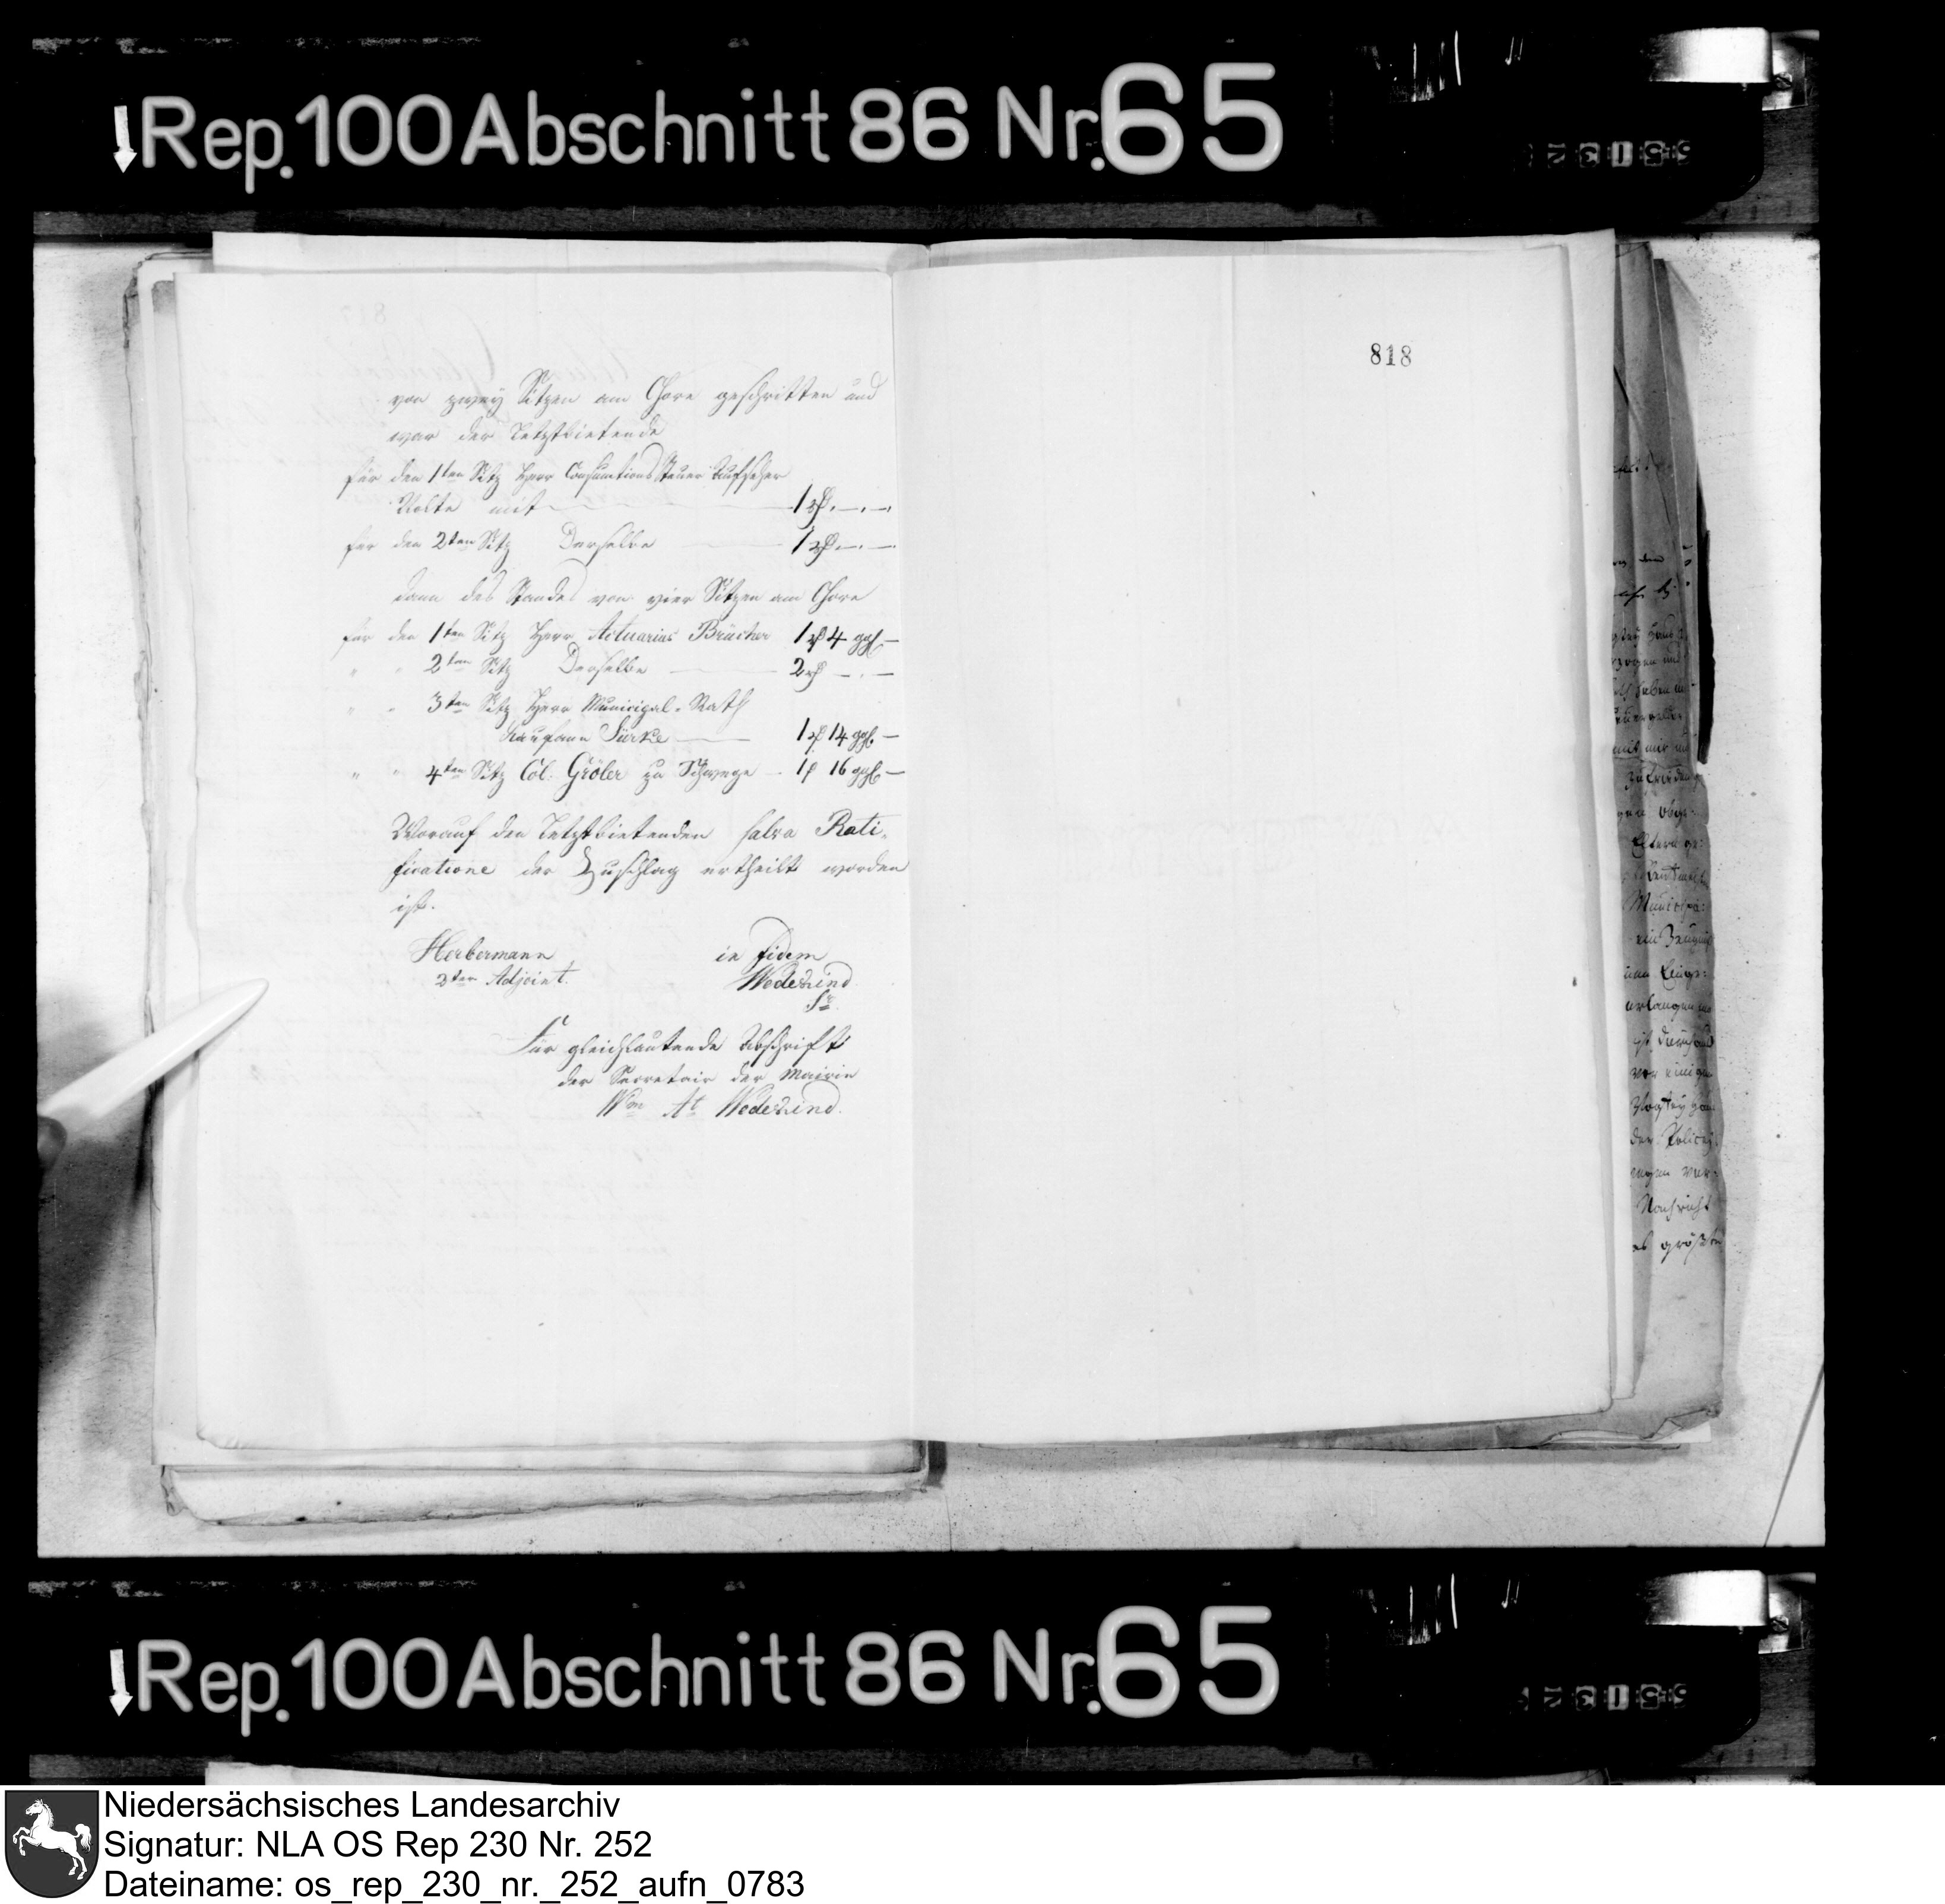 Rep. 100 Abschnitt 86 Nr. 65
818
von zwey Sitzen am Chore geschritten und
war der Letztbietende
für den 1ten Sitz Herr Consumtions Steuer Aufseher
Nolte mit 1 rh. —.—.
für den 2ten Sitz Derselbe 1 rh —.—
dann des Standes von vier Sitzen am Chore
für den 1ten Sitz Herr Actuarius Brücher 1 rh 4 ggl. —
" " 2ten Sitz Derselbe 2 rh —.—
" " 3ten Sitz Herr Municipal-Rath
Kaufmann Sürke 1 rh 14 ggl. —
" " 4ten Sitz Col. Gröler zu Schwege — 1 rh 16 ggl. —
Worauf den Letztbietenden salva Rati-
ficatione der Zuschlag ertheilt worden
ist.
Herbermann in fidem
2ter Adjoint. Wedekind
Sr.
Für gleichlautende Abschrift
der Secretair der Mairie
Wm At Wedekind.
Rep. 100 Abschnitt 86 Nr. 65
Niedersächsisches Landesarchiv
Signatur: NLA OS Rep 230 Nr. 252
Dateiname: os_rep_230_nr._252_aufn_0783